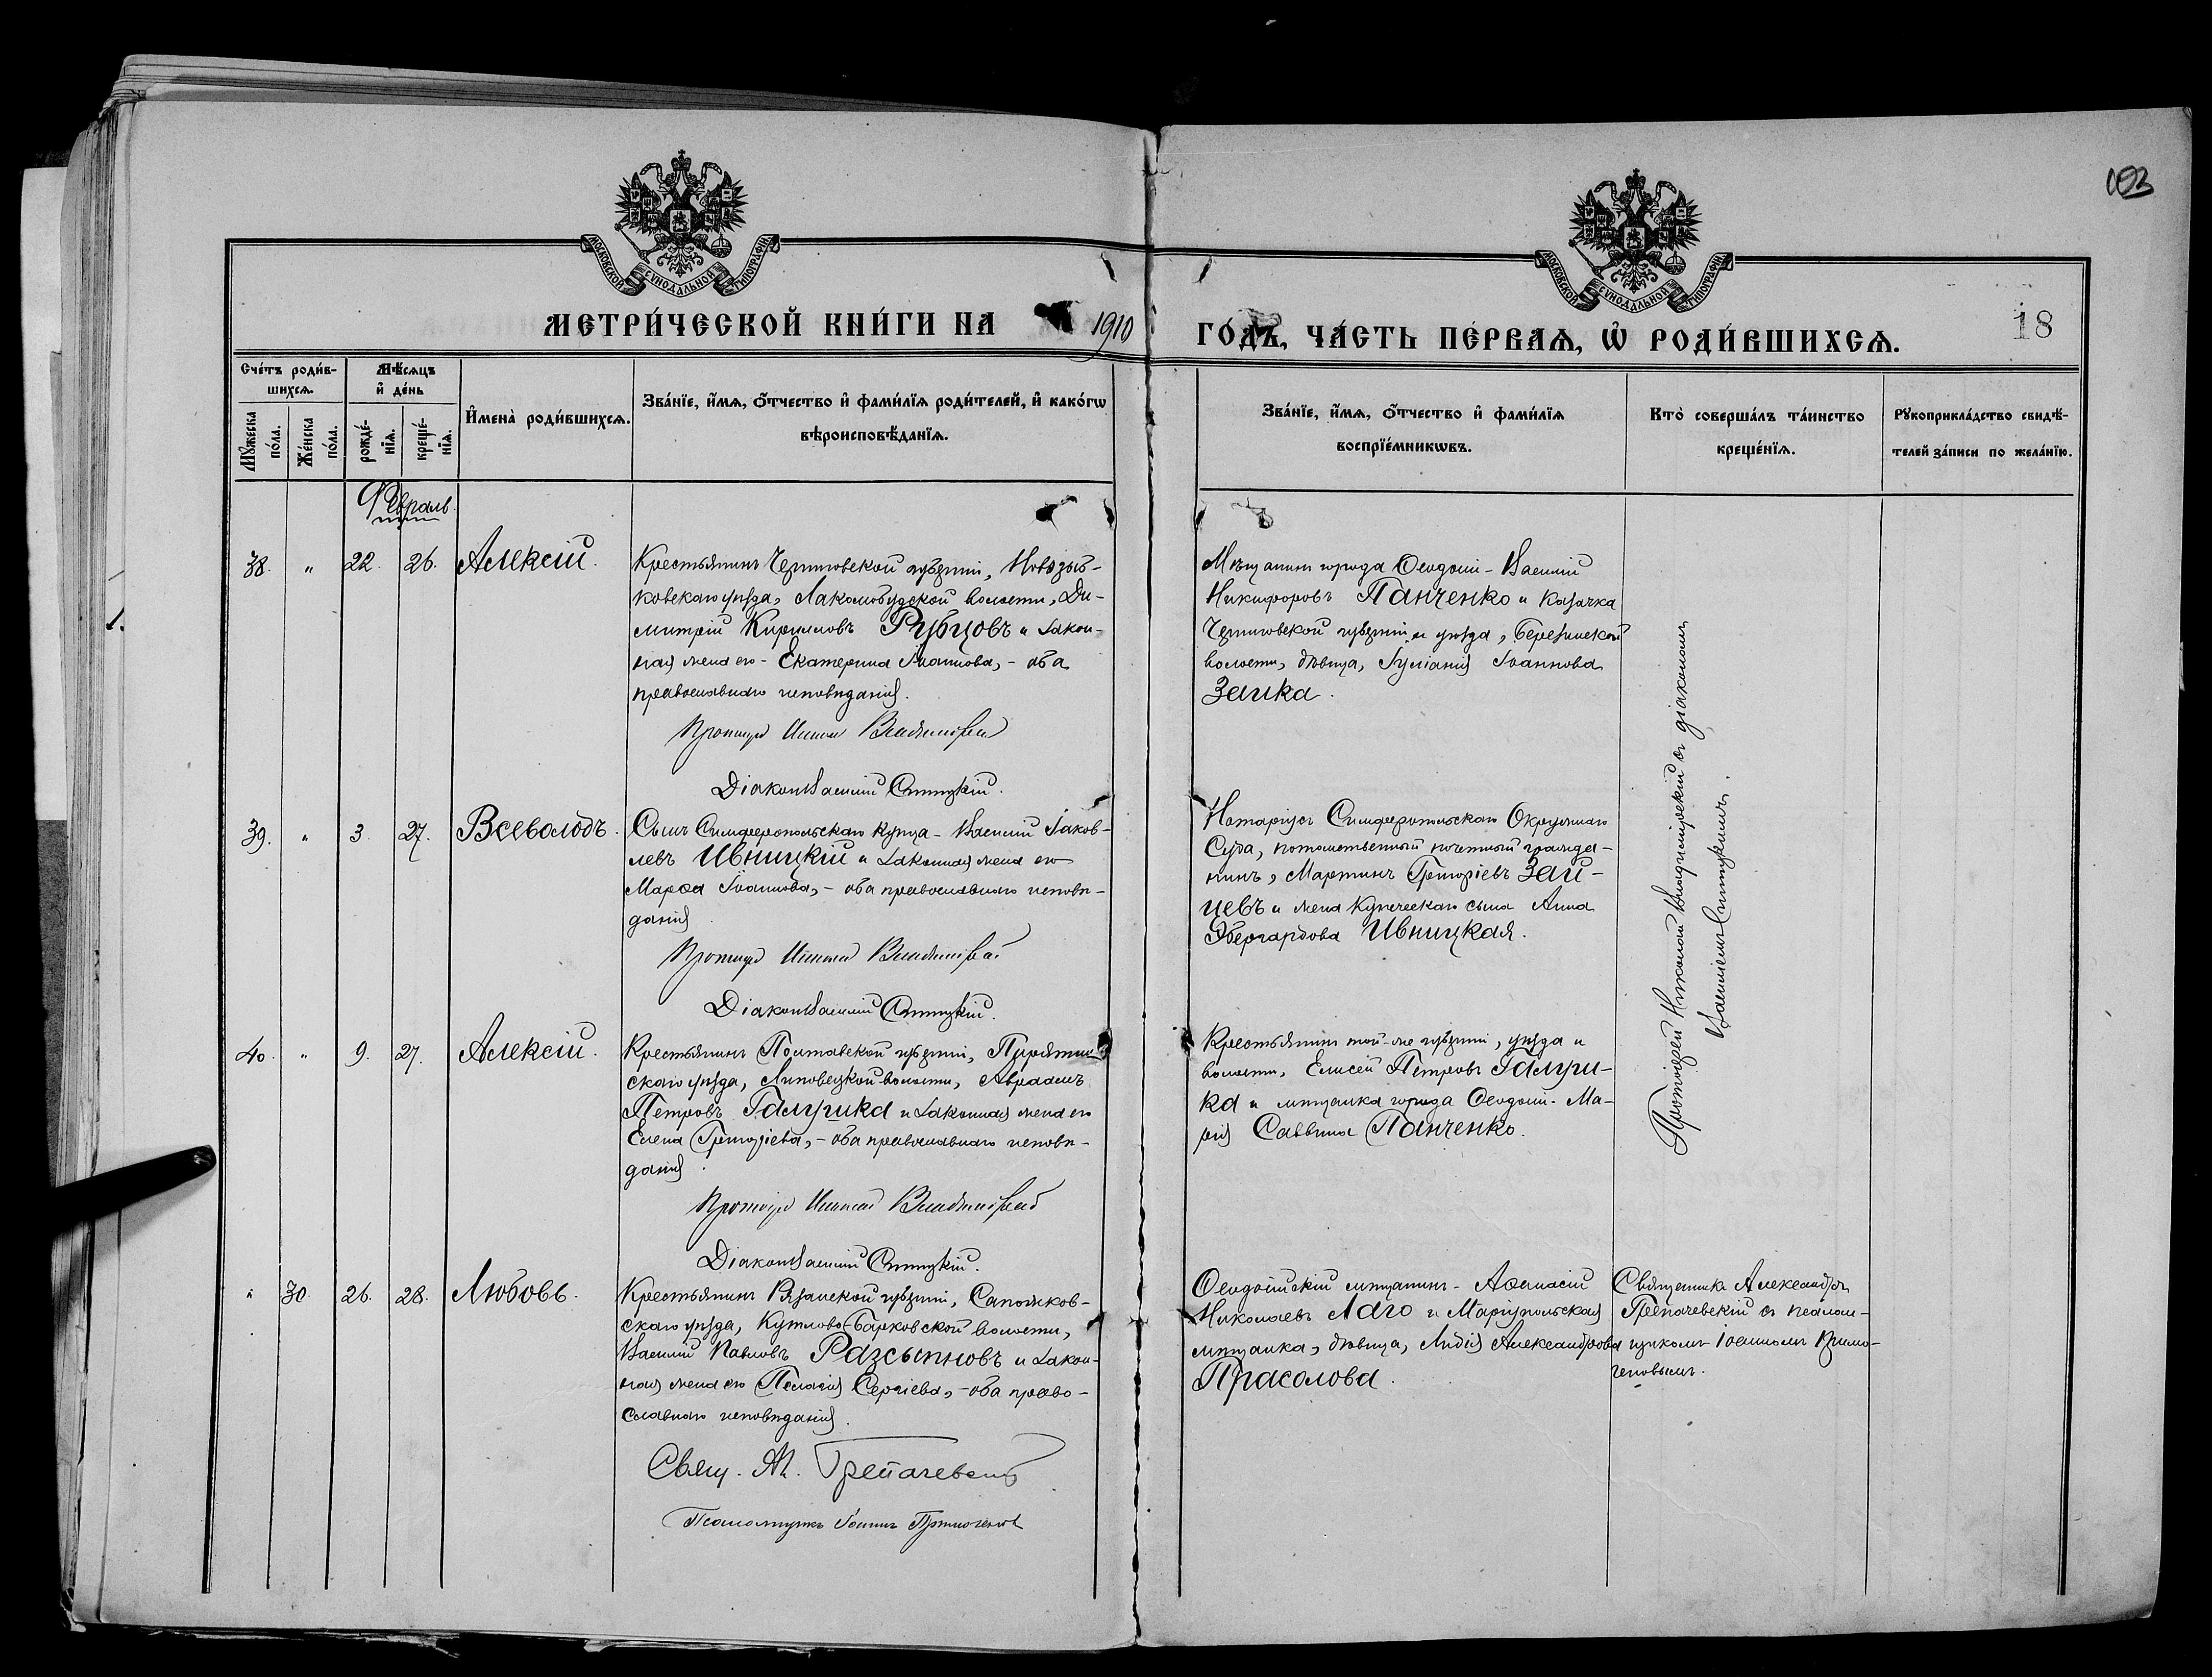 103
МОСКОВСКОЙ СѴНОДАЛЬНОЙ ТИПОГРАФІИ
МОСКОВСКОЙ СѴНОДАЛЬНОЙ ТИПОГРАФІИ
МЕТРИ́ЧЕСКОЙ КНИ́ГИ НА 1910 ГО́ДЪ, ЧА́СТЬ ПЕ́РВАѦ, Ѡ РОДИ́ВШИХСѦ.
18
Сче́тъ роди́в-
шихсѧ.
Мꙋ́жеска по́ла.
Же́нска по́ла.
Мѣ́сѧцъ
и҆ де́нь
рожде́-
нїѧ.
креще́-
нїѧ.
И҆мена̀ роди́вшихсѧ.
Зва́нїе, и҆́мѧ, ѻ҆́тчество и҆ фами́лїѧ роди́телей, и҆ како́гѡ
вѣроисповѣ́данїѧ.
Зва́нїе, и҆́мѧ, ѻ҆́тчество и҆ фами́лїѧ
воспрїе́мникѡвъ.
Кто̀ соверша́лъ та́инство
креще́нїѧ.
Рꙋкоприкла́дство свидѣ́-
телей за́писи по жела́нїю.
Февраль.
38. " 22. 26. Алексій.
Крестьянинъ Черниговской губерніи, Новозыб-
ковскаго уѣзда, Лакомобудской волости, Ди-
митрій Кирилловъ Рубцовъ и закон-
ная жена его - Екатерина Іоаннова, - оба
православнаго исповѣданія.
Протоіерей Николай Владимірскій
Діаконъ Василій
Мѣщанинъ города Ѳеодосіи - Василій
Никифоровъ Панченко и казачка
Черниговской губерніи и уѣзда, Березинской
волости, дѣвица, Іуліанія Іоаннова
Заика.
39. " 3. 27. Всеволодъ.
Сынъ Симферопольскаго купца - Василій Іаков-
левъ Ивницкій и законная жена его
Марѳа Іоаннова, - оба православнаго исповѣ-
данія
Протоіерей Николай Владимірскій
Діаконъ Василій
Нотаріусъ Симферопольскаго Окружнаго
Суда, потомственный почетный гражда-
нинъ, Мартинъ Григоріевъ Зай-
цевъ и жена купеческаго сына Анна
Эбергардова Ивницкая.
40. " 9. 27. Алексій.
Крестьянинъ Полтавской губерніи, Пирятин-
скаго уѣзда, Липовецкой волости, Авраамъ
Петровъ Галушка и законная жена его
Елена Григоріева, - оба православнаго исповѣ-
данія.
Протоіерей Николай Владимірскій
Діаконъ Василій
Крестьянинъ той-же губерніи, уѣзда и
волости, Елисей Петровъ Галуш-
ка и мѣщанка города Ѳеодосіи - Ма-
рія Саввина Панченко.
Протоіерей Николай Владимірскій съ діакономъ
Василіемъ
" 30. 26. 28. Любовь.
Крестьянинъ Рязанской губерніи, Сапожков-
скаго уѣзда, Кутлово-Борковской волости,
Василій Павловъ Разсыпновъ и закон-
ная жена его Пелагія Сергіева, - оба право-
славнаго исповѣданія.
Свящ. Ал.
Псаломщикъ Іоаннъ
Ѳеодосійскій мѣщанинъ - Аѳанасій
Николаевъ Лаго и Маріупольская
мѣщанка, дѣвица, Лидія Александрова
Прасолова.
Священникъ Александръ
съ псалом-
щикомъ Іоанномъ